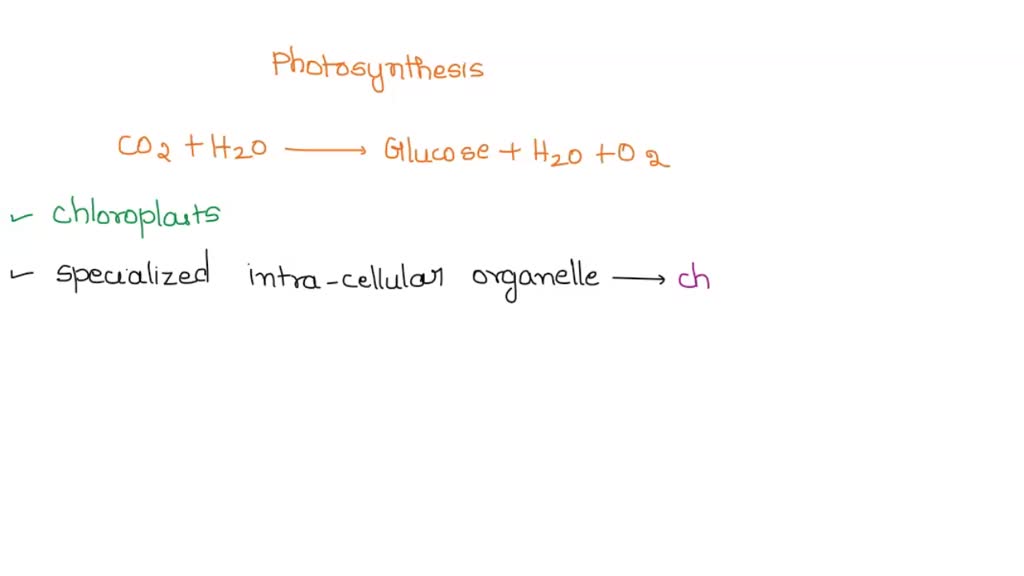 Photosynthesis
CO2 + H2O → Glucose + H2O + O2
✓ chloroplasts
✓ specialized intra-cellular organelle → ch